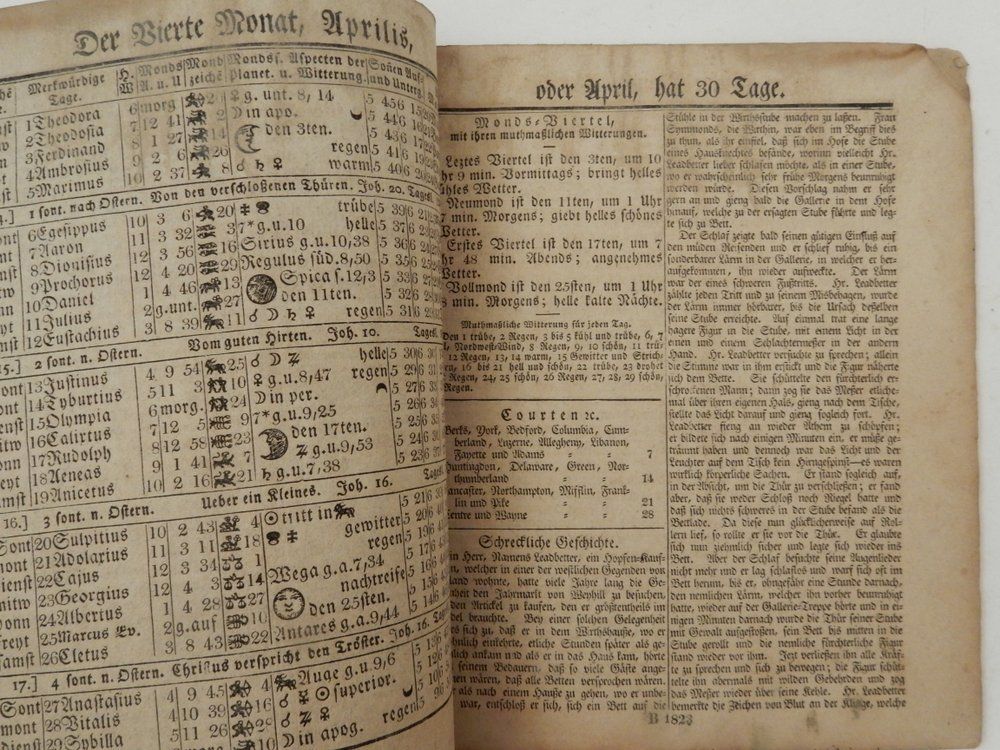 Der Vierte Monat, Aprilis,
Merkwürdige Tage. H. W Monds A. u. U Mond zeichē Monds f. Aspecten der Planet. u. Witterung. Soñen Auf und Unterg.
1 Theodora 6 morg ♀ g. unt. 8, 14 5 45 6 15
2 Theodosia 7 12 41 ☽ in apo. 5 44 6 16
3 Ferdinand 8 1 27 den 3ten. 5 43 6 17
4 Ambrosius 9 2 6 26 regen 5 41 6 19
5 Maximus 10 2 37 8 ☌ ♄ ♀ warm 5 40 6 20
1 sont. nach Ostern. Von den verschloßenen Thüren. Joh. 20. Tagesl.
6 Egesippus 10 3 6 20 trübe 5 39 6 21
7 Aaron 11 3 32 3 7* g. u. 10 helle 5 37 6
8 Dionisius 12 3 56 16 Sirius g. u. 10, 38 5 36 6
9 Prochorus 12 4 20 29 Regulus süd. 8, 50 5 35 6
10 Daniel 1 4 46 13 Spica s. 12, 3 5 33 6
11 Julius 2 g. unt. 27 den 11ten. 5 32 6 28
12 Eustachius 3 8 39 11 ☌ ☽ ♄ ♀ regen 5 31 6
15.] 2 sont. n. Ostern. Vom guten Hirten. Joh 10. Tagesl.
13 Justinus 4 9 54 25 helle 5 30 6 30
14 Tyburtius 5 11 3 10 ♀ g. u. 8, 47 regen 5 29 6
15 Olympia 6 morg. 24 ☽ in per. 5 27 6
16 Calixtus 7 12 5 9 7* g. u. 9, 25 5 26 6
17 Rudolph 8 12 58 23 den 17ten. 5 25 6
18 Aeneas 9 1 41 7 g. u. 9, 53 5 24 6
19 Anicetus 10 2 16 21 ♄ g. u. 7, 38 5 23 6
16.] 3 sont. n. Ostern. Ueber ein Kleines. Joh. 16. Tagesl.
Sont 20 Sulpitius 10 2 43 4 ☉ tritt in 5 21 6
mont 21 Adolarius 11 3 11 18 gewitter 5 20 6
dienst 22 Cajus 12 3 34 1 regen 5 19 6
mitw 23 Georgius 12 3 56 14 Wega g. a. 7, 34
Donn 24 Albertus 1 4 28 27 nachtreife
freyt 25 Marcus Ev. 2 g. auf 10 den 25sten.
samst 26 Cletus 3 8 43 22 Antares g. a. 9, 44
17.] 4 sont. n. Ostern. Christus verspricht den Tröster. Joh. 16. Tagesl.
Sont 27 Anastasius 4 9 45 Auge g. u. 9, 6
mont 28 Vitalis 4 10 39 ☉ superior.
dienst 29 Sybilla 5 11 26
10 ☽ in apog. regen
oder April, hat 30 Tage.
Monds-Viertel,
mit ihren muthmaßlichen Witterungen.
Leztes Viertel ist den 3ten, um 10
hr 9 min. Vormittags; bringt helles
ühles Wetter.
Neumond ist den 11ten, um 1 Uhr
min. Morgens; giebt helles schönes
Wetter.
Erstes Viertel ist den 17ten, um 7
hr 48 min. Abends; angenehmes
Wetter.
Vollmond ist den 25sten, um 1 Uhr
min. Morgens; helle kalte Nächte.
Muthmaßliche Witterung für jeden Tag.
Den 1 trübe, 2 Regen, 3 bis 5 kühl und trübe, 6, 7
Nordwest-Wind, 8 Regen, 9, 10 schön, 11 trüb
12 Regen, 13, 14 warm, 15 Gewitter und Strich-
en, 16 bis 21 hell und schön, 22 trübe, 23 drohet
Regen, 24, 25 schön, 26 Regen, 27, 28, 29 schön,
Regen.
Courten ꝛc.
Berks, York, Bedford, Columbia, Cum-
berland, Luzerne, Allegheny, Libanon,
Fayette und Adams 7
Huntingdon, Delaware, Green, Nor-
thumberland 14
Lancaster, Northampton, Mifflin, Frank-
lin und Pike 21
Centre und Wayne 28
Schreckliche Geschichte.
in Herr, Namens Leadbetter, ein Hopfen-Kauf-
n, welcher in einer der westlichen Gegenden von
land wohnte, hatte viele Jahre lang die Ge-
heit den Jahrmarkt von Weyhill zu besuchen,
den Artickel zu kaufen, den er größtentheils im
del brauchte. Bey einer solchen Gelegenheit
es sich zu, daß er in dem Wirthshause, wo er
hnlich einkehrte, etliche Stunden später als ge-
lich ankam und als er in das Haus kam, hörte
seinem Bedauern, daß so viele Gäste ange-
en wären, daß alle Betten versprochen wären.
als nach einem Hauße zu gehen, wo er unbe-
war, entschloß er sich, sich ein Bett auf die
Stühle in der Wirthsstube machen zu laßen. Frau
Symmonds, die Wirthin, war eben im Begriff dies
zu thun, als ihr einfiel, daß sich im Hofe die Stube
eines Hausknechtes befände, worinn vielleicht Hr.
Leadbetter lieber schlafen möchte, als in einer Stube,
wo er wahrscheinlich sehr frühe Morgens beunruhigt
werden würde. Diesen Vorschlag nahm er sehr
gern an und gieng bald die Gallerie in dem Hofe
hinauf, welche zu der ersagten Stube führte und leg-
te sich zu Bett.
Der Schlaf zeigte bald seinen gütigen Einfluß auf
den müden Reisenden und er schlief ruhig, bis ein
sonderbarer Lärm in der Gallerie, in welcher er her-
aufgekommen, ihn wieder aufweckte. Der Lärm
war der eines schweren Fußtritts. Hr. Leadbetter
zählte jeden Tritt und zu seinem Misbehagen, wurde
der Lärm immer hörbarer, bis die Ursach deßelben
seine Stube erreichte. Auf einmal trat eine lange
hagere Figur in die Stube, mit einem Licht in der
einen und einem Schlachtermesser in der andern
Hand. Hr. Leadbetter versuchte zu sprechen; allein
die Stimme war in ihm erstickt und die Figur näherte
sich dem Bette. Sie schüttelte den fürchterlich er-
schrockenen Mann; dann zog sie das Meßer etliche-
mal über ihren eigenen Hals, gieng nach dem Tische,
stellte das Licht darauf und gieng sogleich fort. Hr.
Leadbetter fieng an wieder Athem zu schöpfen;
er bildete sich nach einigen Minuten ein, er müße ge-
träumt haben und dennoch war das Licht und der
Leuchter auf dem Tisch kein Hirngespinst—es waren
würklich körperliche Sachen. Er stand sogleich auf,
in der Absicht, um die Thür zu verschließen; er fand
aber, daß sie weder Schloß noch Riegel hatte und
daß sich nichts schweres in der Stube befand als die
Bettlade. Da diese nun glücklicherweise auf Rol-
lern lief, so rollte er sie vor die Thür. Er glaubte
sich nun ziehmlich sicher und legte sich wieder ins
Bett. Aber der Schlaf besuchte seine Augenlieder
nicht mehr und er lag schlaflos und warf sich oft im
Bett herum, bis er, ohngefähr eine Stunde darnach,
den nemlichen Lärm, welcher ihn vorher beunruhigt
hatte, wieder auf der Gallerie-Treppe hörte und in ei-
nigen Minuten darnach wurde die Thür seiner Stube
mit Gewalt aufgestoßen, sein Bett bis mitten in die
Stube gerollt und die nemliche fürchterliche Figur
stand wieder vor ihm. Jezt verließen ihn alle Kräf-
te zu sprechen und sich zu bewegen; die Figur schüt-
telte ihn abermals mit wilden Gebehrden und zog
das Meßer wieder über seine Kehle. Hr. Leadbetter
bemerkte die Zeichen von Blut an der Klinge, welche
B 1823